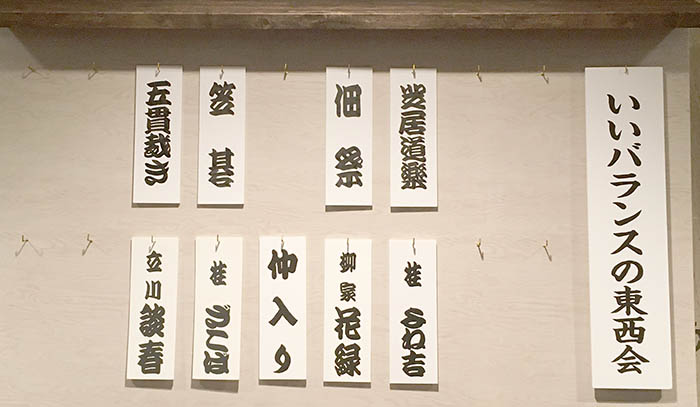 いいバランスの東西会
芝居道楽
桂 よね吉
佃祭
柳家 花緑
仲入り
笠碁
桂 ざこば
五貫裁き
立川 談春